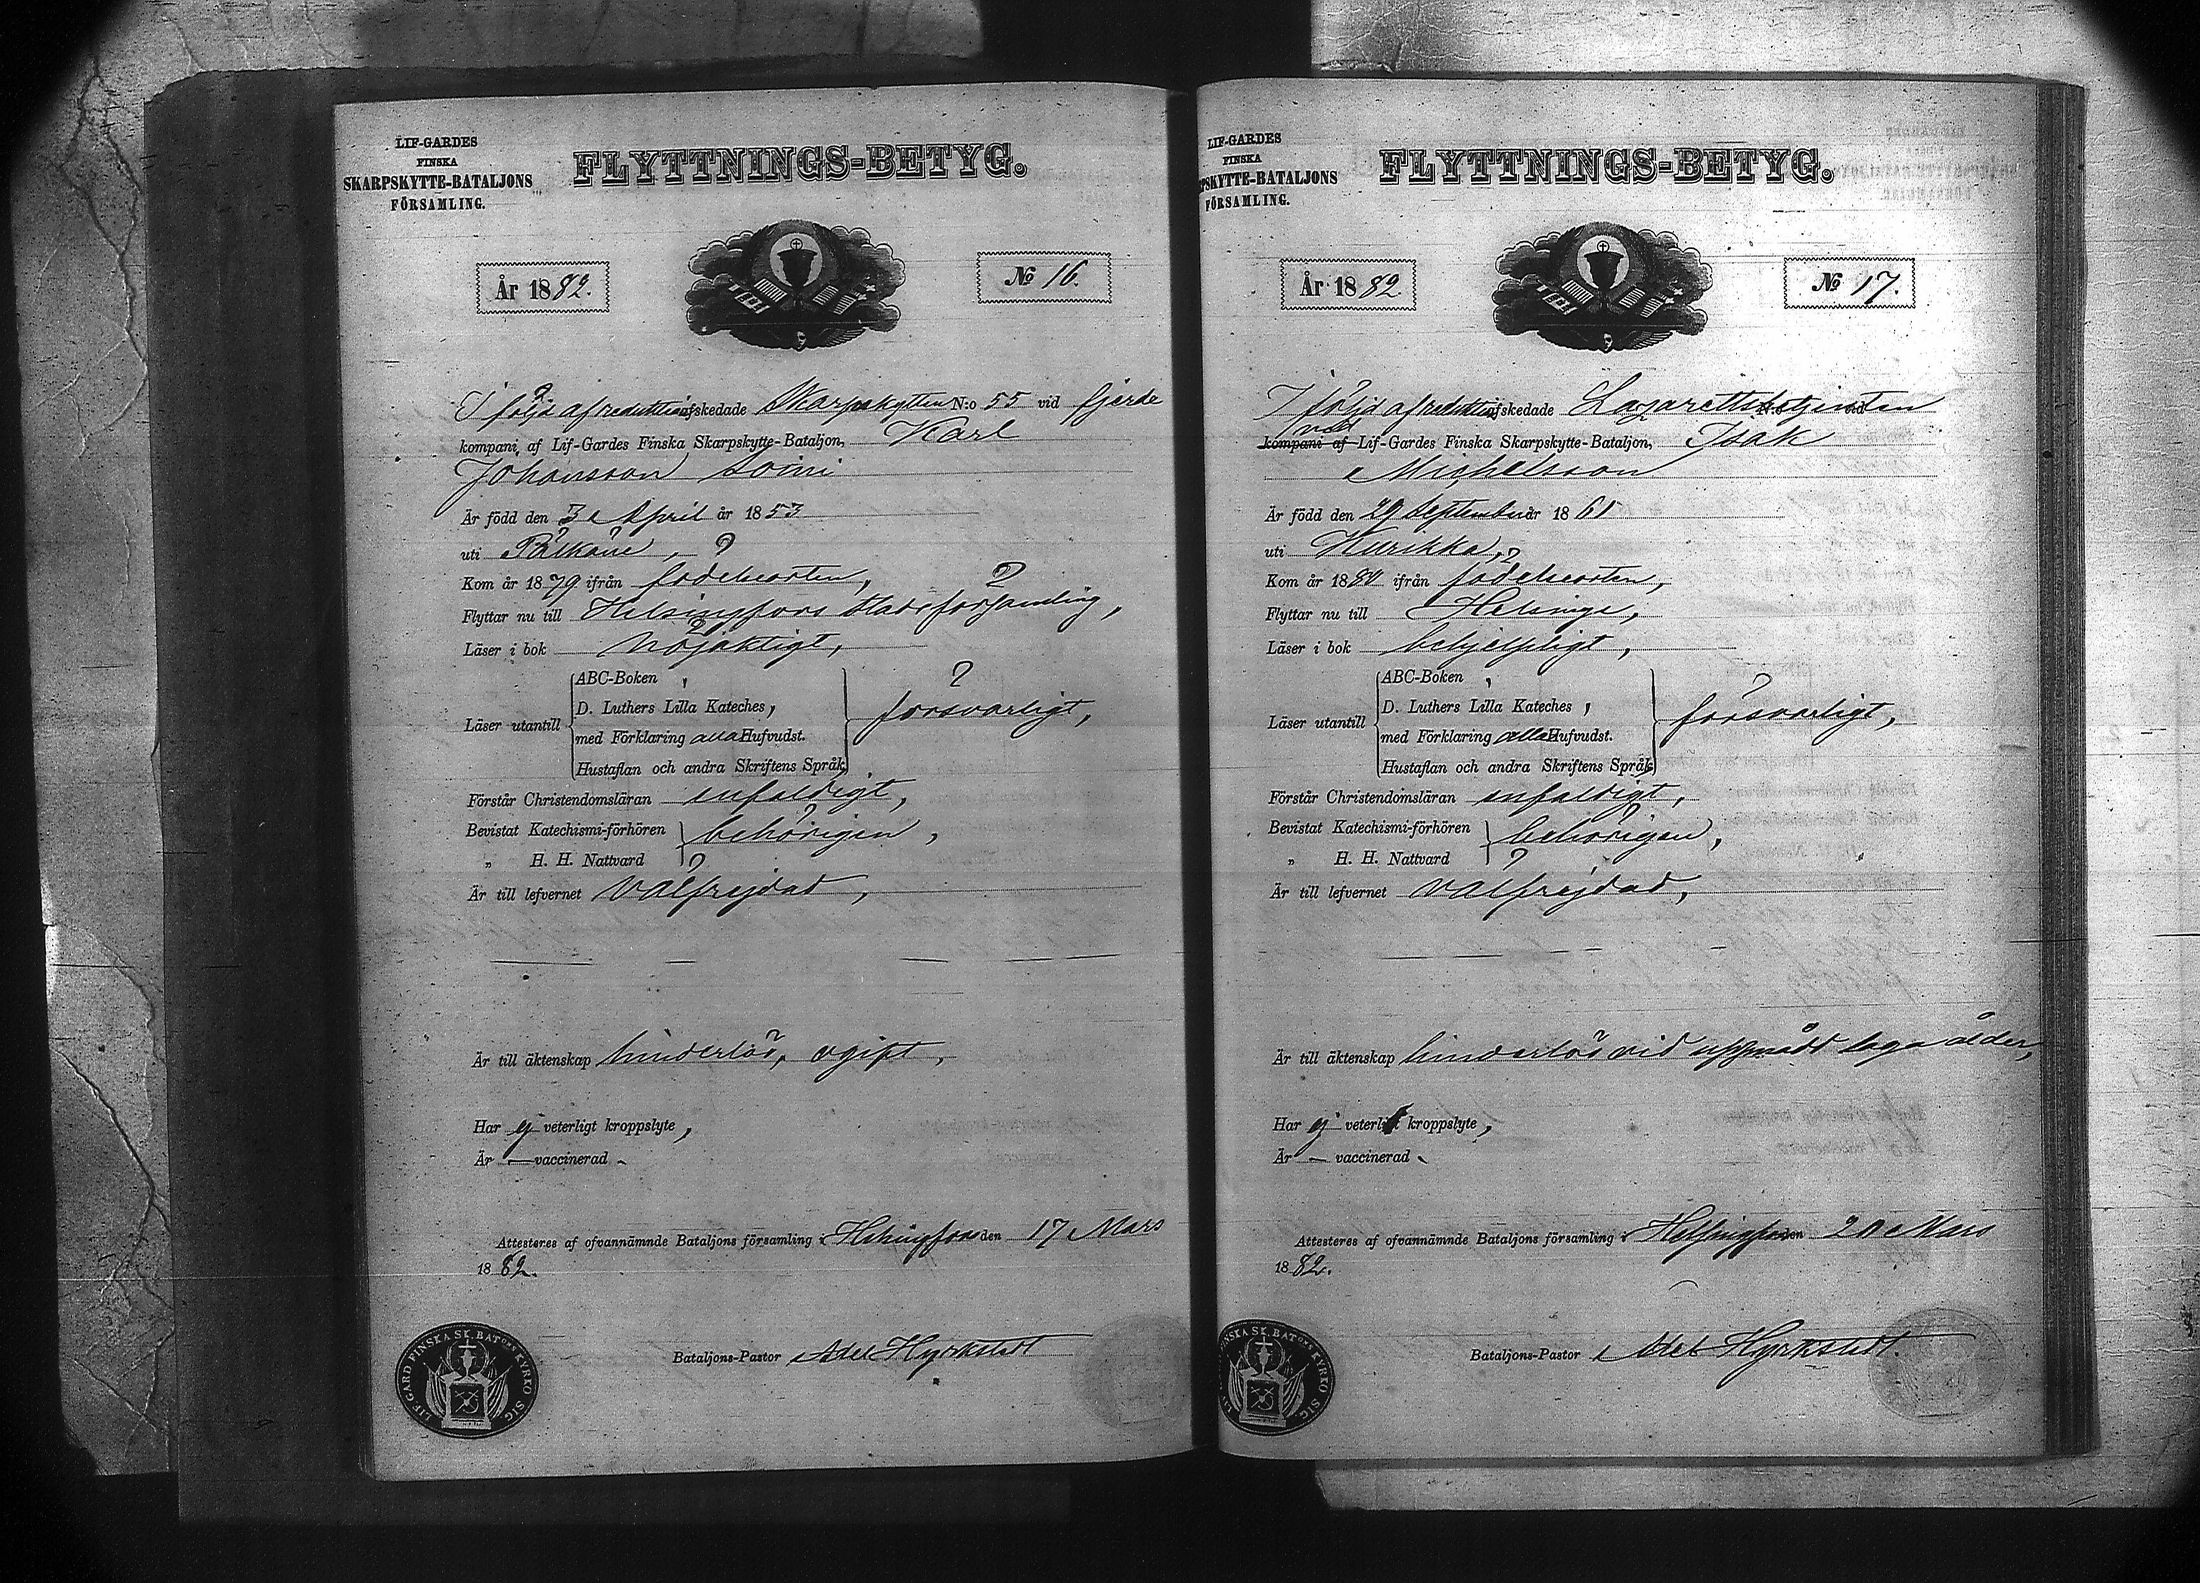 LIF-GARDES
FINSKA
SKARPSKYTTE-BATALJONS
FÖRSAMLING.
FLYTTNINGS-BETYG.
År 1882.
No 16.
I följd af reduktion afskedade Skarpskytten N:o 55 vid fjerde
kompani af Lif-Gardes Finska Skarpskytte-Bataljon, Karl
Johansson Soini
Är född den 3 April år 1853
uti Pälkäne,
Kom år 1879 ifrån födelseorten,
Flyttar nu till Helsingfors stads församling,
Läser i bok nöjaktigt,
Läser utantill
ABC-Boken,
D. Luthers Lilla Kateches,
med Förklaring alla Hufvudst.
Hustaflan och andra Skriftens Språk
försvarligt,
Förstår Christendomsläran enfaldigt,
Bevistat Katechismi-förhören
„ H. H. Nattvard
behörigen,
Är till lefvernet välfrejdad,
Är till äktenskap hinderlös, ogift,
Har ej veterligt kroppslyte,
Är — vaccinerad
Attesteras af ofvannämnde Bataljons församling i Helsingfors den 17 Mars
1882.
Bataljons-Pastor Adel Hyrkstedt
LIF-GARD FINSKA SK. BATONS KYRKO SIG.
LIF-GARDES
FINSKA
PSKYTTE-BATALJONS
FÖRSAMLING.
FLYTTNINGS-BETYG.
År 1882
No 17.
I följd af reduktion afskedade Lazarettsbetjenten N:o vid
vid
kompani af Lif-Gardes Finska Skarpskytte-Bataljon, Isak
Michelsson
Är född den 29 September år 1861
uti Kurikka,
Kom år 1881 ifrån födelseorten,
Flyttar nu till Helsinge,
Läser i bok behjelpligt,
Läser utantill
ABC-Boken,
D. Luthers Lilla Kateches,
med Förklaring alla Hufvudst.
Hustaflan och andra Skriftens Språk
försvarligt,
Förstår Christendomsläran enfaldigt,
Bevistat Katechismi-förhören
„ H. H. Nattvard
behörigen,
Är till lefvernet välfrejdad,
Är till äktenskap hinderlös vid uppnådd laga ålder,
Har ej veterligt kroppslyte,
Är — vaccinerad
Attesteras af ofvannämnde Bataljons församling i Helsingfors den 20 Mars
1882.
Bataljons-Pastor Adel Hyrkstedt.
FINSKA SK. BATONS KYRKO SIG.